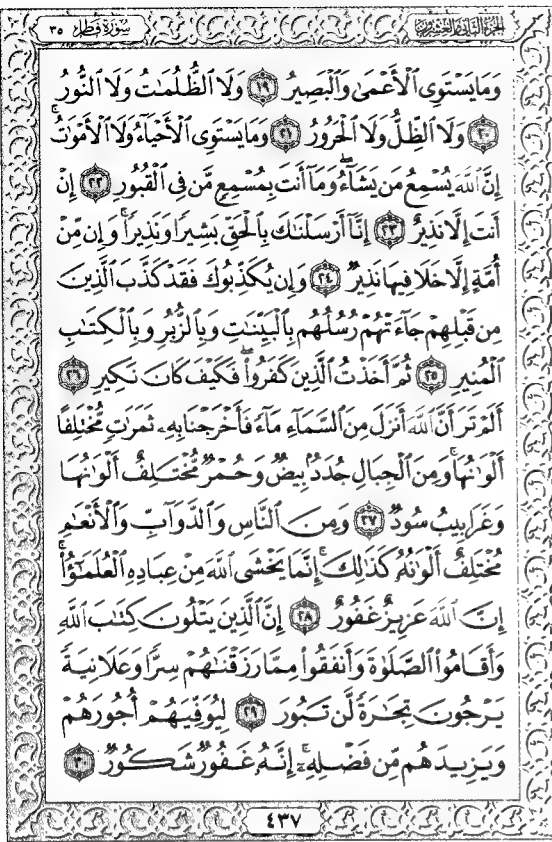 الجزء الثاني والعشرون سورة فاطر ٣٥
وَمَا يَسْتَوِى ٱلْأَعْمَىٰ وَٱلْبَصِيرُ ١٩ وَلَا ٱلظُّلُمَٰتُ وَلَا ٱلنُّورُ
٢٠ وَلَا ٱلظِّلُّ وَلَا ٱلْحَرُورُ ٢١ وَمَا يَسْتَوِى ٱلْأَحْيَآءُ وَلَا ٱلْأَمْوَٰتُ ۚ
إِنَّ ٱللَّهَ يُسْمِعُ مَن يَشَآءُ ۖ وَمَآ أَنتَ بِمُسْمِعٍ مَّن فِى ٱلْقُبُورِ ٢٢ إِنْ
أَنتَ إِلَّا نَذِيرٌ ٢٣ إِنَّآ أَرْسَلْنَٰكَ بِٱلْحَقِّ بَشِيرًا وَنَذِيرًا ۚ وَإِن مِّنْ
أُمَّةٍ إِلَّا خَلَا فِيهَا نَذِيرٌ ٢٤ وَإِن يُكَذِّبُوكَ فَقَدْ كَذَّبَ ٱلَّذِينَ
مِن قَبْلِهِمْ جَآءَتْهُمْ رُسُلُهُم بِٱلْبَيِّنَٰتِ وَبِٱلزُّبُرِ وَبِٱلْكِتَٰبِ
ٱلْمُنِيرِ ٢٥ ثُمَّ أَخَذْتُ ٱلَّذِينَ كَفَرُوا۟ ۖ فَكَيْفَ كَانَ نَكِيرِ ٢٦
أَلَمْ تَرَ أَنَّ ٱللَّهَ أَنزَلَ مِنَ ٱلسَّمَآءِ مَآءً فَأَخْرَجْنَا بِهِۦ ثَمَرَٰتٍ مُّخْتَلِفًا
أَلْوَٰنُهَا ۚ وَمِنَ ٱلْجِبَالِ جُدَدٌۢ بِيضٌ وَحُمْرٌ مُّخْتَلِفٌ أَلْوَٰنُهَا
وَغَرَابِيبُ سُودٌ ٢٧ وَمِنَ ٱلنَّاسِ وَٱلدَّوَآبِّ وَٱلْأَنْعَٰمِ
مُخْتَلِفٌ أَلْوَٰنُهُۥ كَذَٰلِكَ ۗ إِنَّمَا يَخْشَى ٱللَّهَ مِنْ عِبَادِهِ ٱلْعُلَمَٰٓؤُا۟ ۗ
إِنَّ ٱللَّهَ عَزِيزٌ غَفُورٌ ٢٨ إِنَّ ٱلَّذِينَ يَتْلُونَ كِتَٰبَ ٱللَّهِ
وَأَقَامُوا۟ ٱلصَّلَوٰةَ وَأَنفَقُوا۟ مِمَّا رَزَقْنَٰهُمْ سِرًّا وَعَلَانِيَةً
يَرْجُونَ تِجَٰرَةً لَّن تَبُورَ ٢٩ لِيُوَفِّيَهُمْ أُجُورَهُمْ
وَيَزِيدَهُم مِّن فَضْلِهِۦٓ ۚ إِنَّهُۥ غَفُورٌ شَكُورٌ ٣٠
٤٣٧